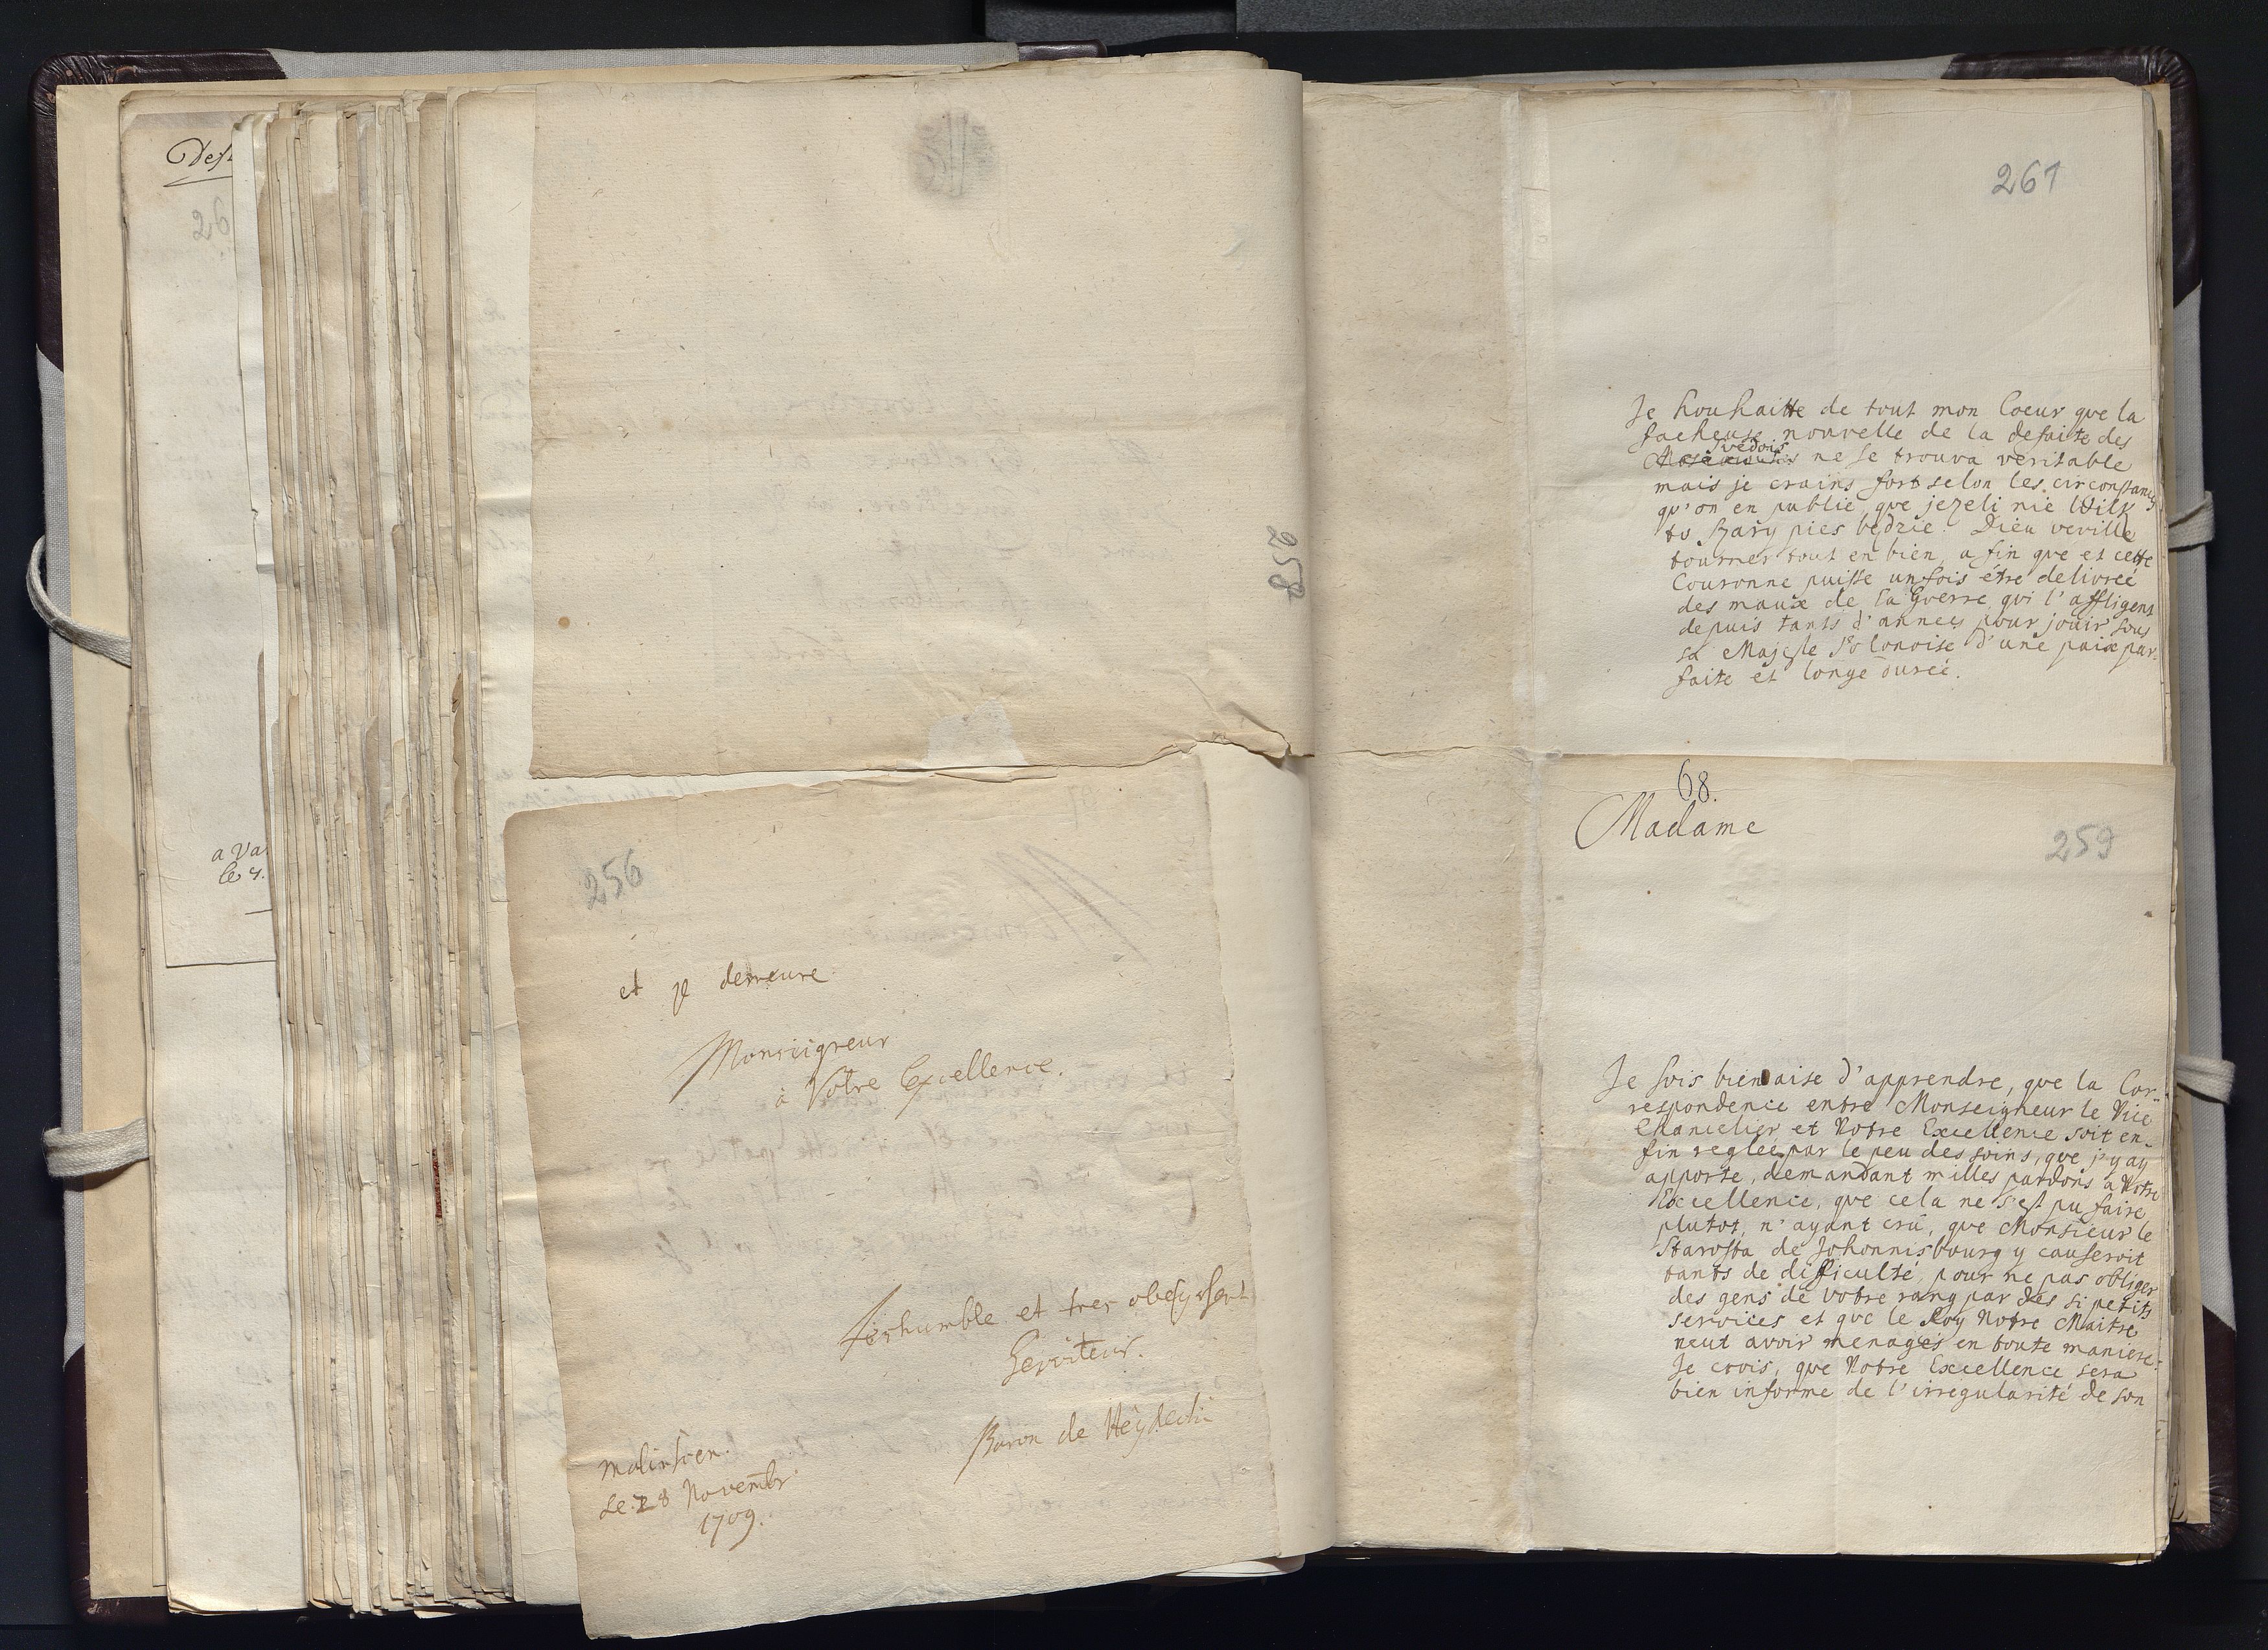 26
a Va
le 4.
258
256
et je demeure
Monseigneur
à Votre Excellence.
treshumble et tres obeyssent
Serviteur.
Baron de
le 28 Novembr
1709.
261
Je souhaitte de tout mon Coeur que la
facheuse nouvelle de la defaite des
Svedois
ne se trouva veritable
mais je crains fort selon les circonstances
qu'on en publie, que jezeli nie Wilk
to Bary pies będzie. Dieu veville
tourner tout en bien, a fin que et cette
Couronne puisse un fois étre delivreé
des maux de la Guerre, qui l'affligent
depuis tants d'annees pour jouir sous
sa Majeste Polonoise d'une paix par-
faite et longe dureé.
68.
Madame
259
Je suis bien aise d'apprendre, que la Cor-
respondence entre Monseigneur le Vice
Chancelier et Votre Excellence soit en-
fin regleé par le peu des soins, que j'y ay
apporte, demandant milles pardons a Votre
Excellence, que cela ne s'est pu faire
plutot, n'ayant crû, que Monsieur le
Starosta de Johannisbourg y causeroit
tants de difficulté, pour ne pas obliger
des gens de votre rang par des si petits
services et que le Roy Notre Maitre
veut avoir menagés en toute maniere.
Je crois, que Votre Excellence sera
bien informe de l'irregularité de son